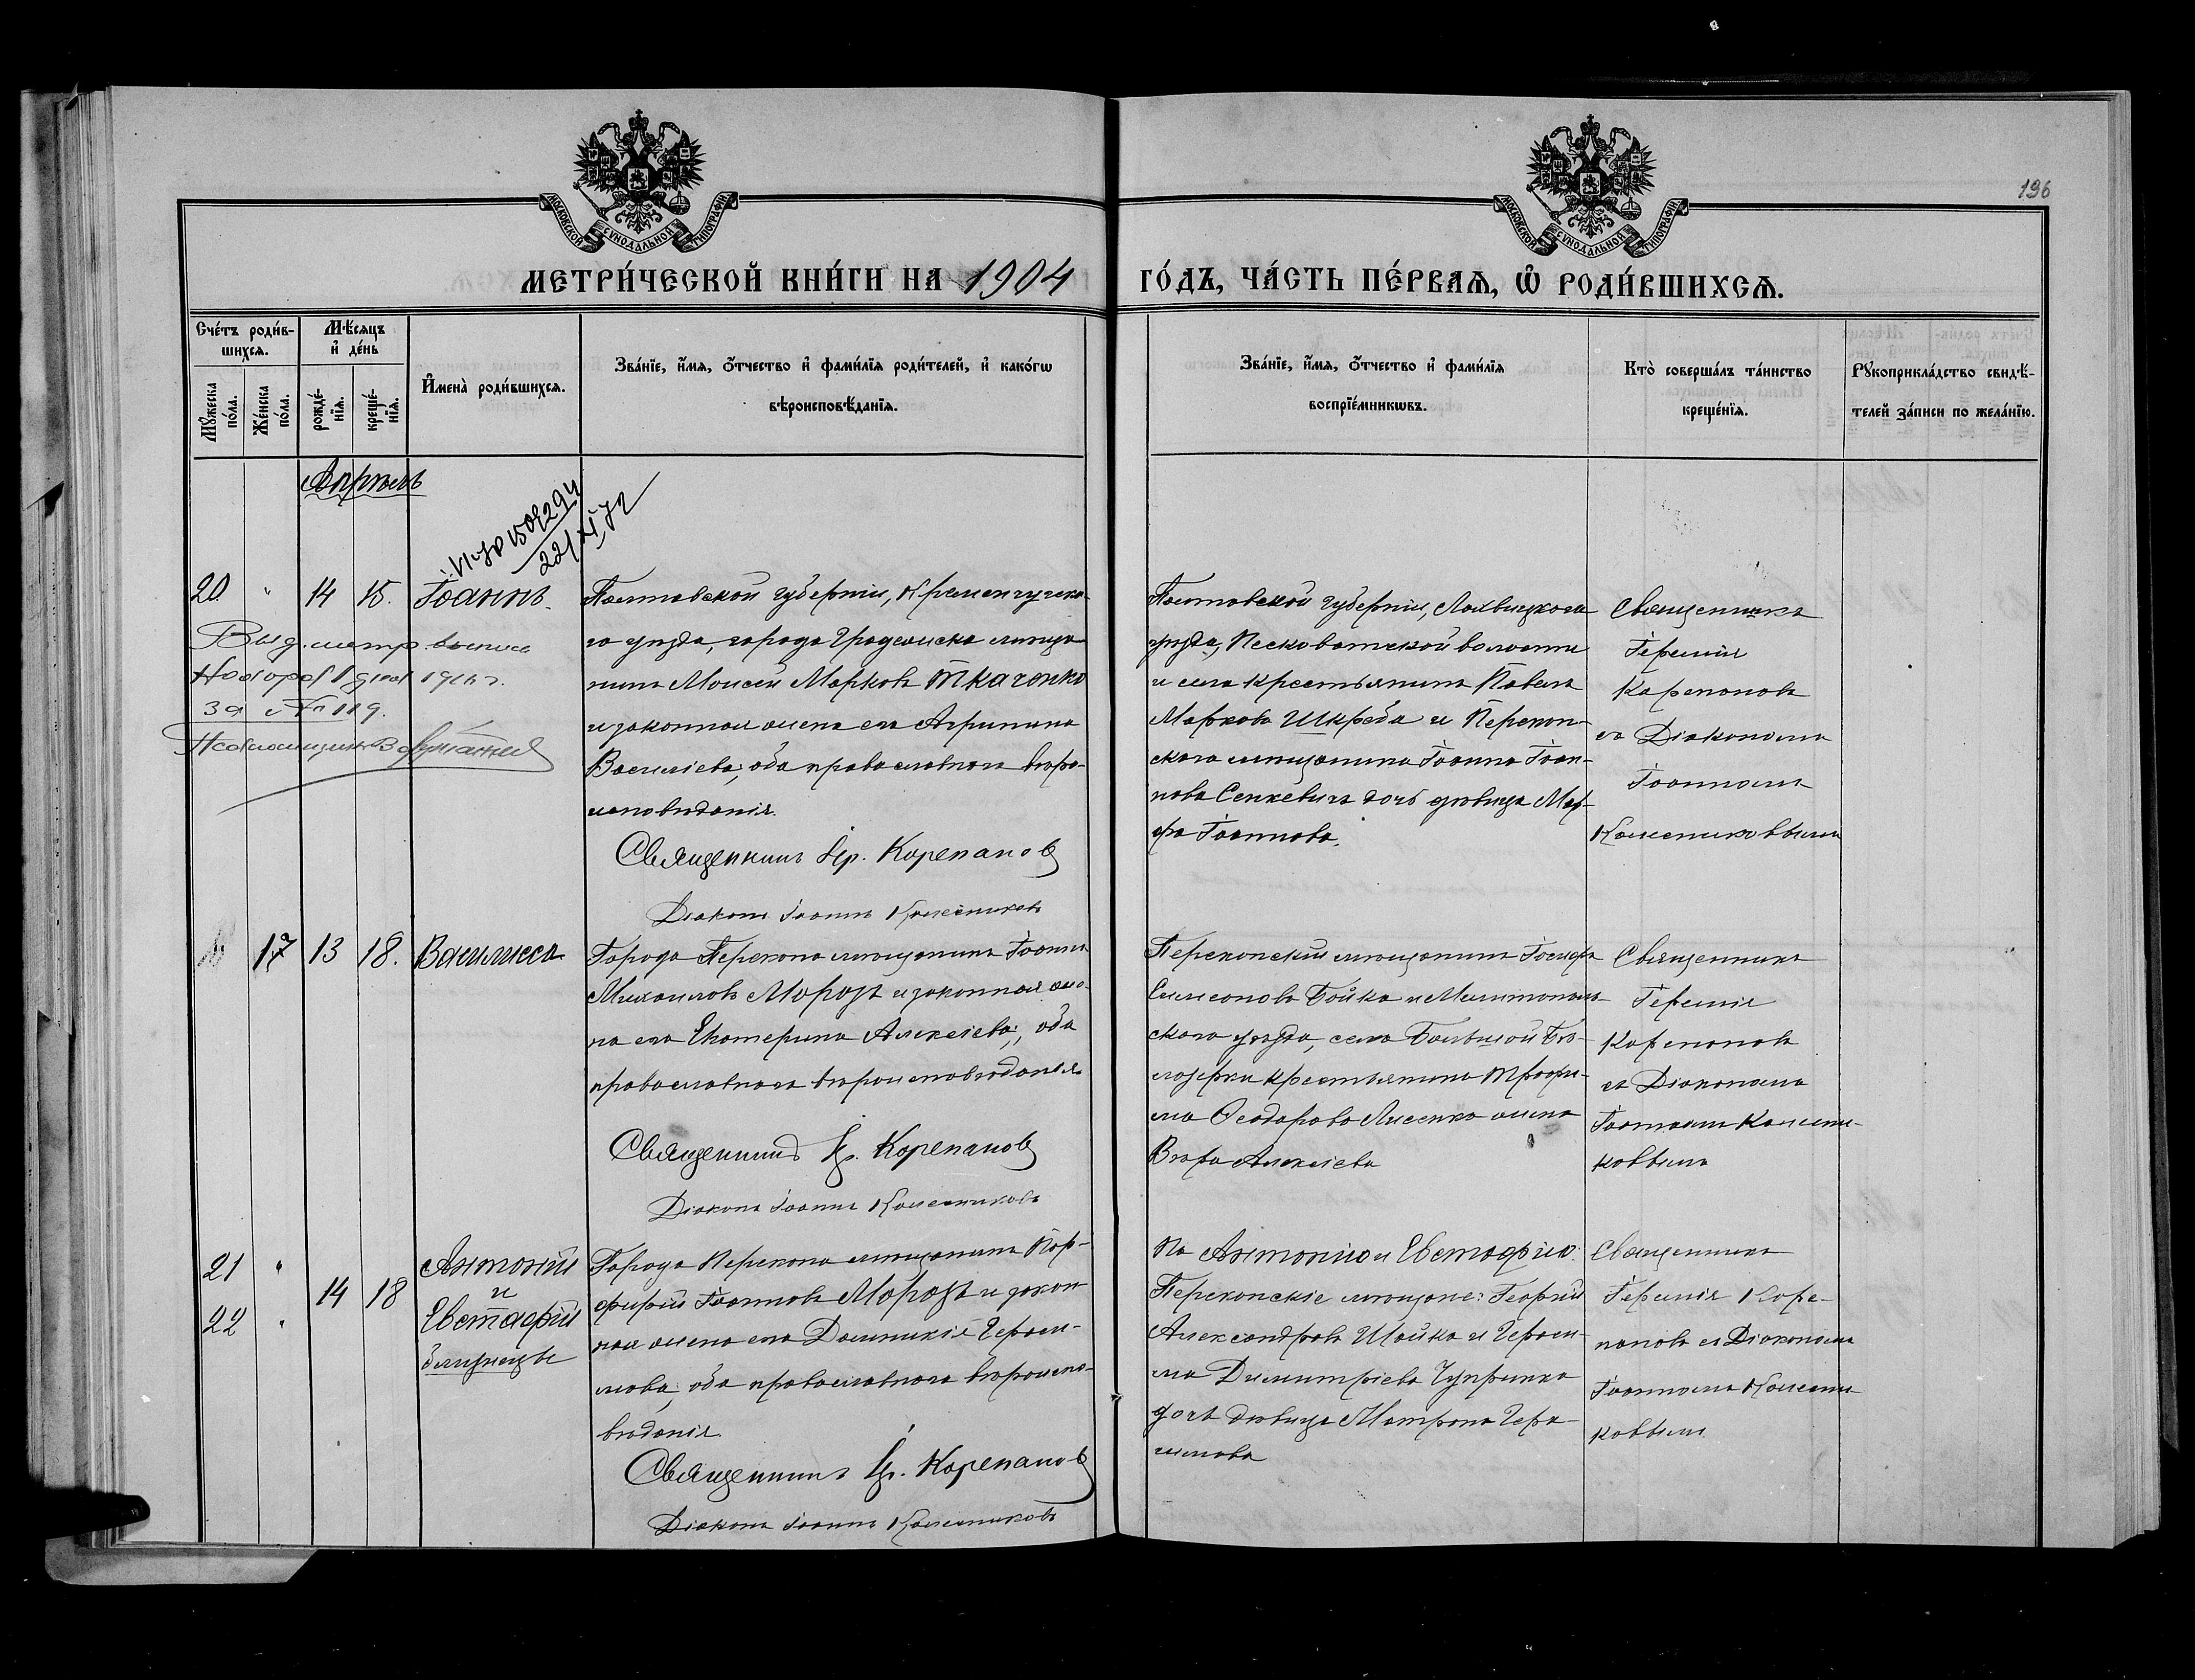 МОСКОВСКОЙ СѴНОДАЛЬНОЙ ТИПОГРАФІИ
МОСКОВСКОЙ СѴНОДАЛЬНОЙ ТИПОГРАФІИ
196
МЕТРИ́ЧЕСКОЙ КНИ́ГИ НА 1904 ГО́ДЪ, ЧА́СТЬ ПЕ́РВАѦ, Ѡ҆ РОДИ́ВШИХСѦ.
Сче́тъ роди́в-
шихсѧ.
Мѣ́сяцъ
и҆ де́нь
Мꙋ́жеска по́ла.
Же́нска по́ла.
рожде́-
нїѧ.
креще́-
нїѧ.
И҆мена̀ роди́вшихсѧ.
Зва́нїе, и҆́мѧ, ѻ҆́тчество и҆ фами́лїѧ роди́телей, и҆ како́гѡ
вѣроисповѣ́данїѧ.
Зва́нїе, и҆́мѧ, ѻ҆́тчество и҆ фами́лїѧ
воспрїе́мникѡвъ.
Кто̀ соверша́лъ та́инство
креще́нїѧ.
Рꙋкоприкла́дство свидѣ́-
телей за́писи по жела́нїю.
Апрѣль
22/XI
20. " 14 15. Іоаннъ.
Выд. метр. выпись
за № 119.
Полтавской губерніи, Кременчугска-
го уѣзда, города Градижска мѣща-
нинъ Моисей Марковъ Ткаченко
и законная жена его Агрипина
Василіева, оба православного вѣро-
исповѣданія.
Священникъ Іер. Корепановъ
Діаконъ Іоаннъ Колесниковъ
Полтавской губерніи, Лохвицкого
уѣзда, Песковатской волости
и села крестьянинъ Павелъ
Марковъ Шкреба и Перекоп-
ского мѣщанина Іоанна Іоан-
нова Сенкевича дочь дѣвица Мар-
фа Іоаннова.
Священникъ
Іеремія
Корепановъ
съ Діакономъ
Іоанномъ
Колесниковымъ
17 13 18. Василисса
Города Перекопа мѣщанинъ Іоаннъ
Михаиловъ Морозъ и законная же-
на его Екатерина Алексіева, оба
православного вѣроисповѣданія
Священникъ Іер. Корепановъ
Діаконъ Іоаннъ Колесниковъ
Перекопскій мѣщанинъ Іосифъ
Симеоновъ Бойко и Мелитополь-
ского уѣзда, села Большой Бѣ-
лозерки крестьянина Трофи-
ма Ѳеодорова Лисенко жена
Вѣра Алексіева
Священникъ
Іеремія
Корепановъ
съ Діакономъ
Іоанномъ Колесни-
ковымъ
21 "
22 "
14 18
Антоній
и
Евстафій
близнецы
Города Перекопа мѣщанинъ Пор-
фирій Іоанновъ Морозъ и закон
ная жена его Домникія Гераси-
мова, оба православного вѣроиспо-
вѣданія.
Священникъ Іер. Корепановъ
Діаконъ Іоаннъ Колесниковъ
По Антонію и Евстафію:
Перекопскіе мѣщане: Георгій
Александровъ Шайко и Гераси-
ма Димитріева Чупринко
дочь дѣвица Матрона Гера-
симова
Священникъ
Іеремія Коре-
пановъ съ Діакономъ
Іоанномъ Колесни-
ковымъ